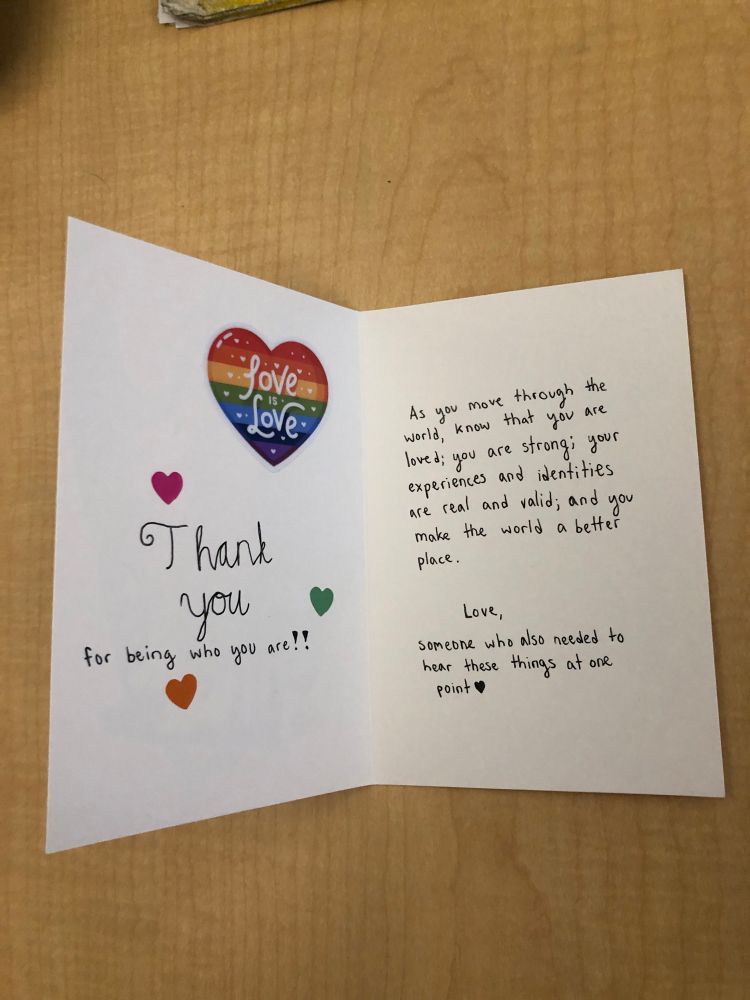 Love
IS
Love
Thank
you
for being who you are!!
As you move through the
world, know that you are
loved; you are strong; your
experiences and identities
are real and valid; and you
make the world a better
place.
Love,
someone who also needed to
hear these things at one
point♥